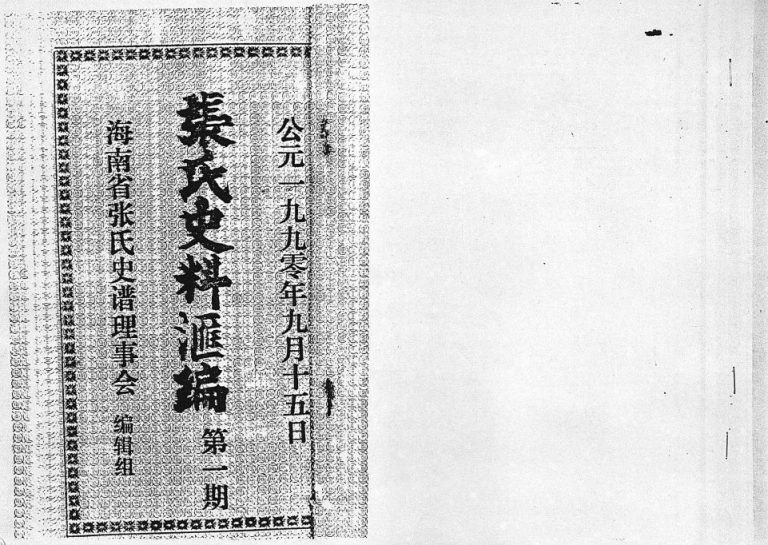 公元一九九零年九月十五日
張氏史料滙编
第一期
海南省张氏史谱理事会
编辑组